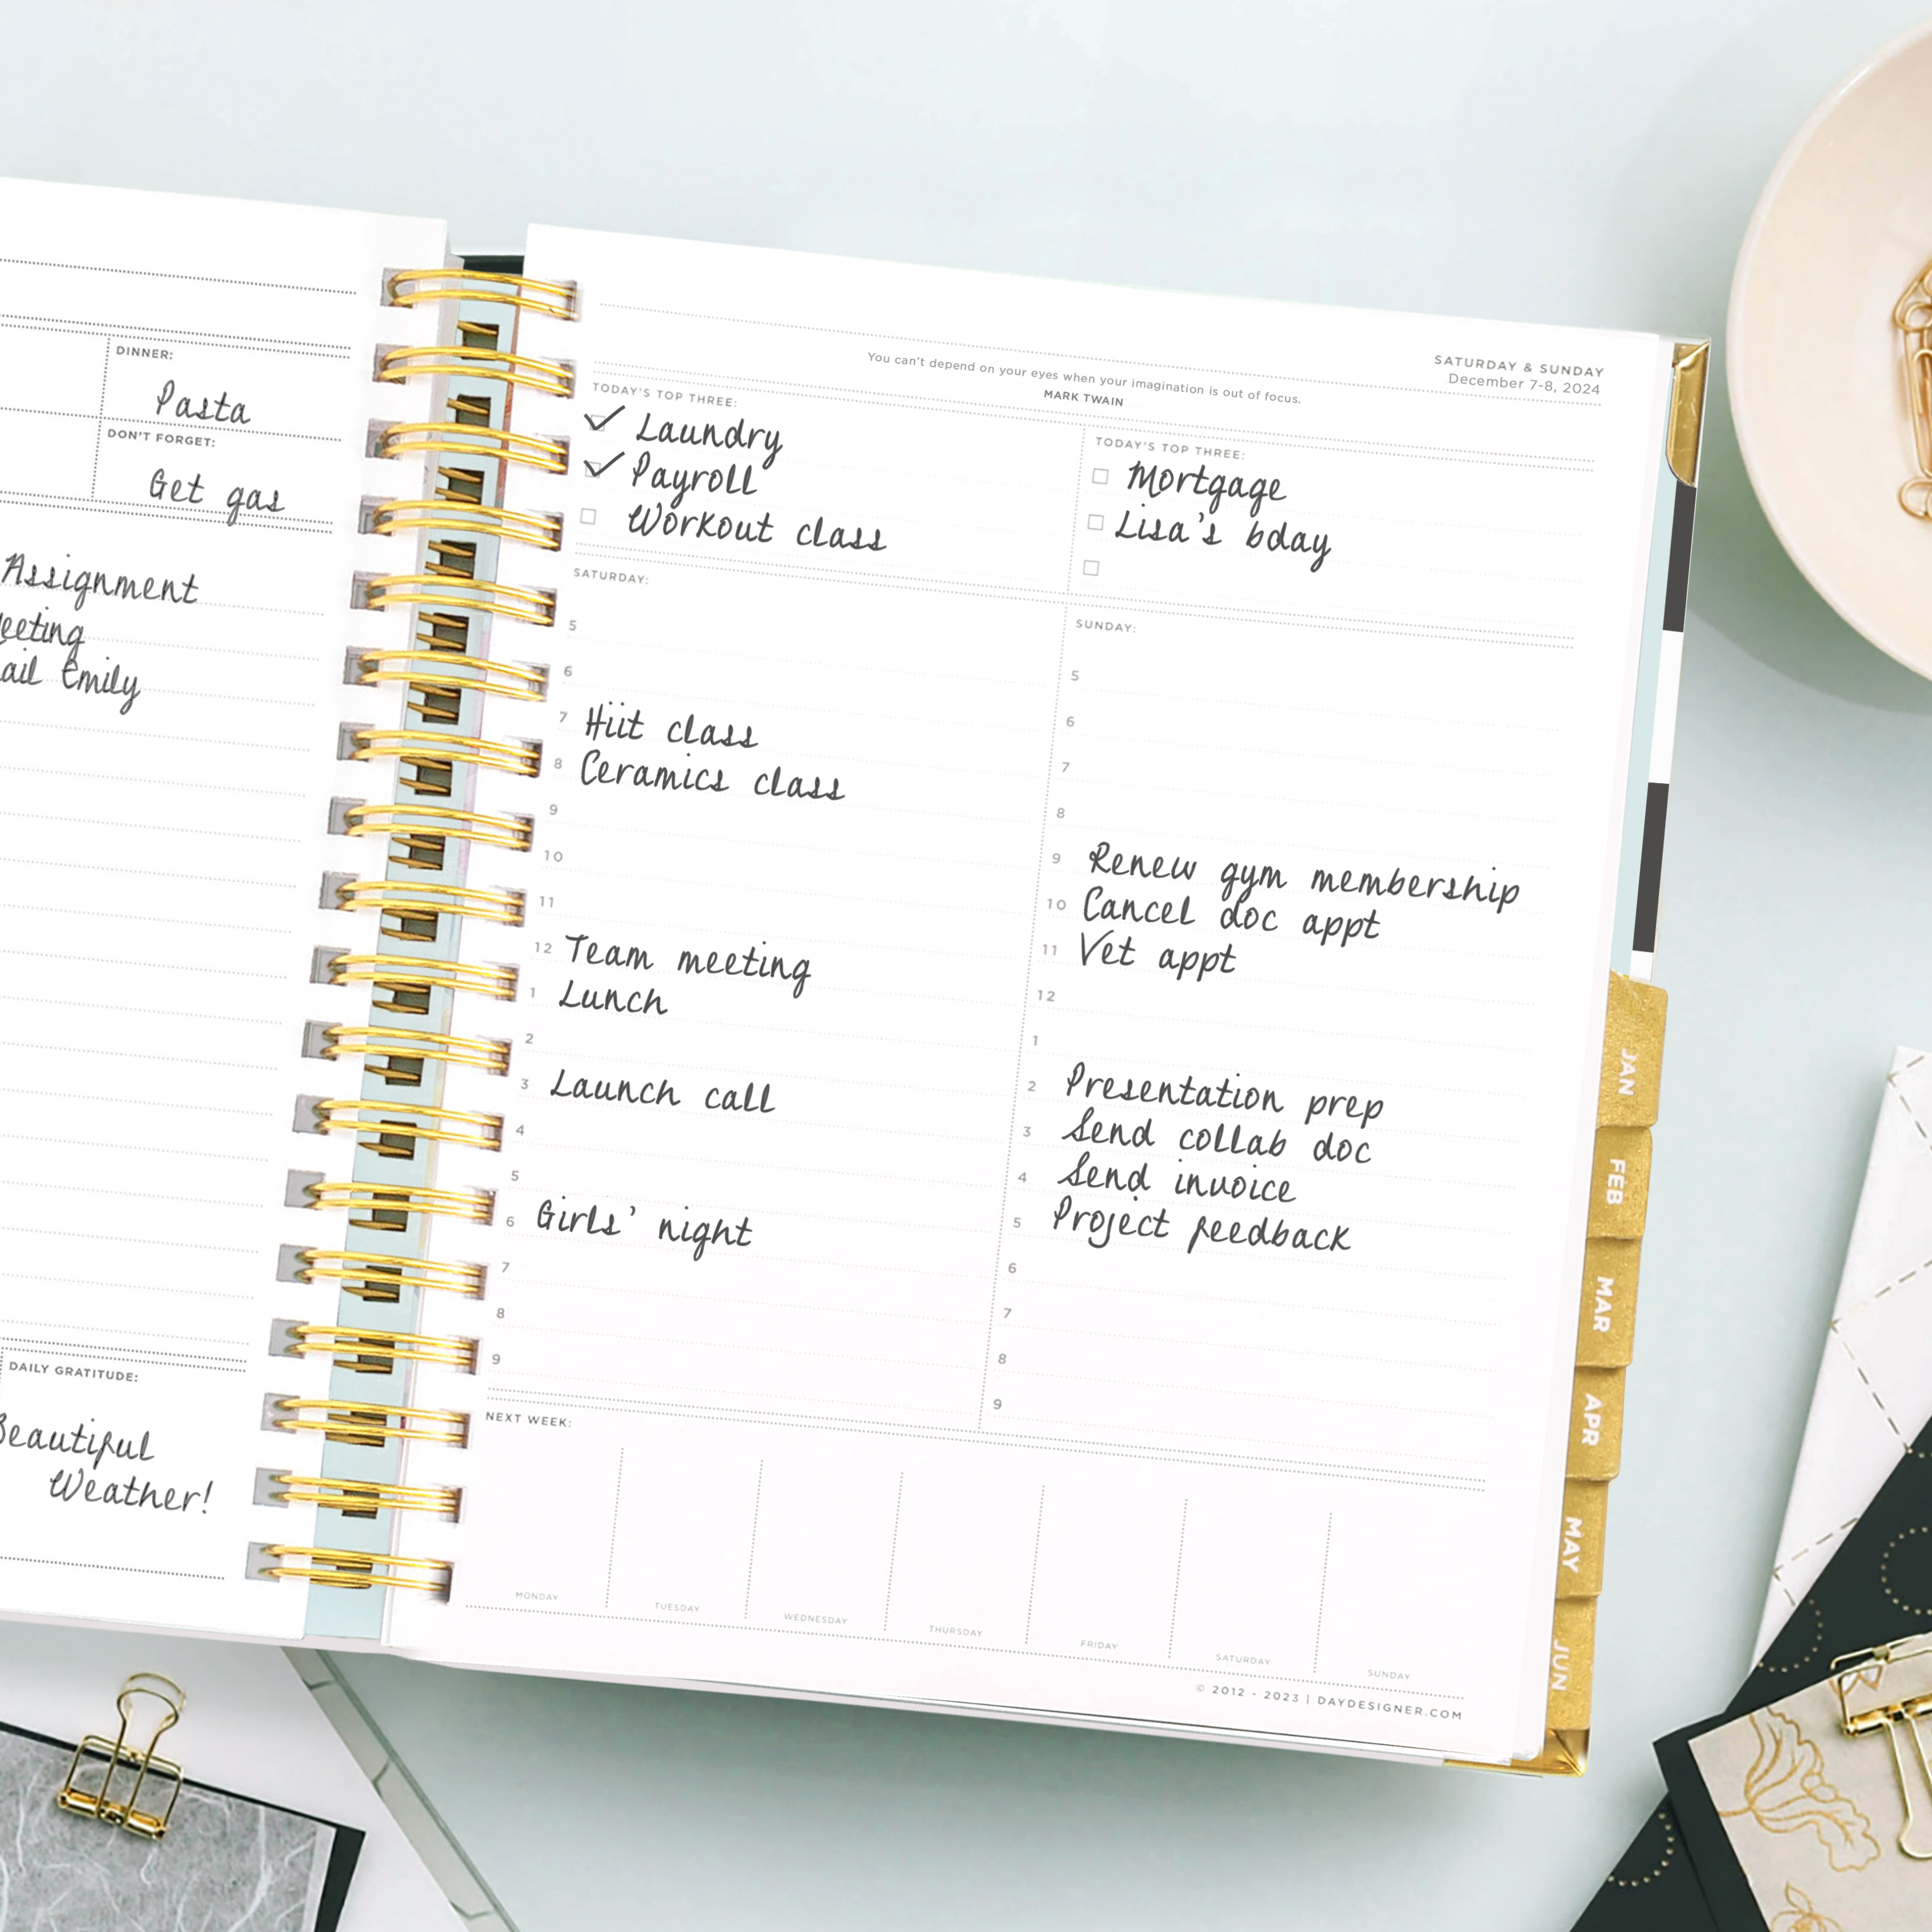 DINNER:
Pasta
DON'T FORGET:
Get gas
Assignment
Emily
DAILY GRATITUDE:
Beautiful
Weather!
SATURDAY & SUNDAY
December 7-8, 2024
You can't depend on your eyes when your imagination is out of focus.
MARK TWAIN
TODAY'S TOP THREE:
Laundry
Payroll
Workout class
TODAY'S TOP THREE:
Mortgage
Lisa's bday
SATURDAY:
5
6
7 Hiit class
8 Ceramics class
9
10
11
12 Team meeting
1 Lunch
2
3 Launch call
4
5
6 Girls' night
7
8
9
SUNDAY:
5
6
7
8
9 Renew gym membership
10 Cancel doc appt
11 Vet appt
12
1
2 Presentation prep
3 Send collab doc
4 Send invoice
5 Project feedback
6
7
8
9
NEXT WEEK:
MONDAY
TUESDAY
WEDNESDAY
THURSDAY
FRIDAY
SATURDAY
SUNDAY
© 2012 - 2023 | DAYDESIGNER.COM
JAN
FEB
MAR
APR
MAY
JUN